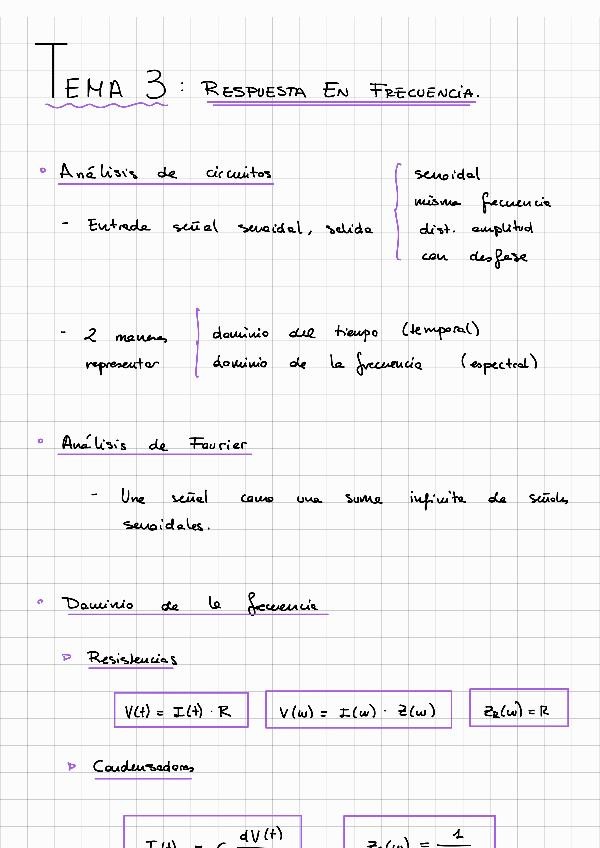 TEMA 3: RESPUESTA EN FRECUENCIA.
Análisis de circuitos
- Entrada señal senoidal, salida
senoidal
misma frecuencia
dist. amplitud
con desfase
- 2 maneras representar
dominio del tiempo (temporal)
dominio de la frecuencia (espectral)
Análisis de Fourier
- Una señal como una suma infinita de señales
senoidales.
Dominio de la frecuencia
Resistencias
V(t) = I(t) · R V(ω) = I(ω) · Z(ω) Z_R(ω) = R
Condensadores
I(t) = C dV(t) Z_c(ω) = 1